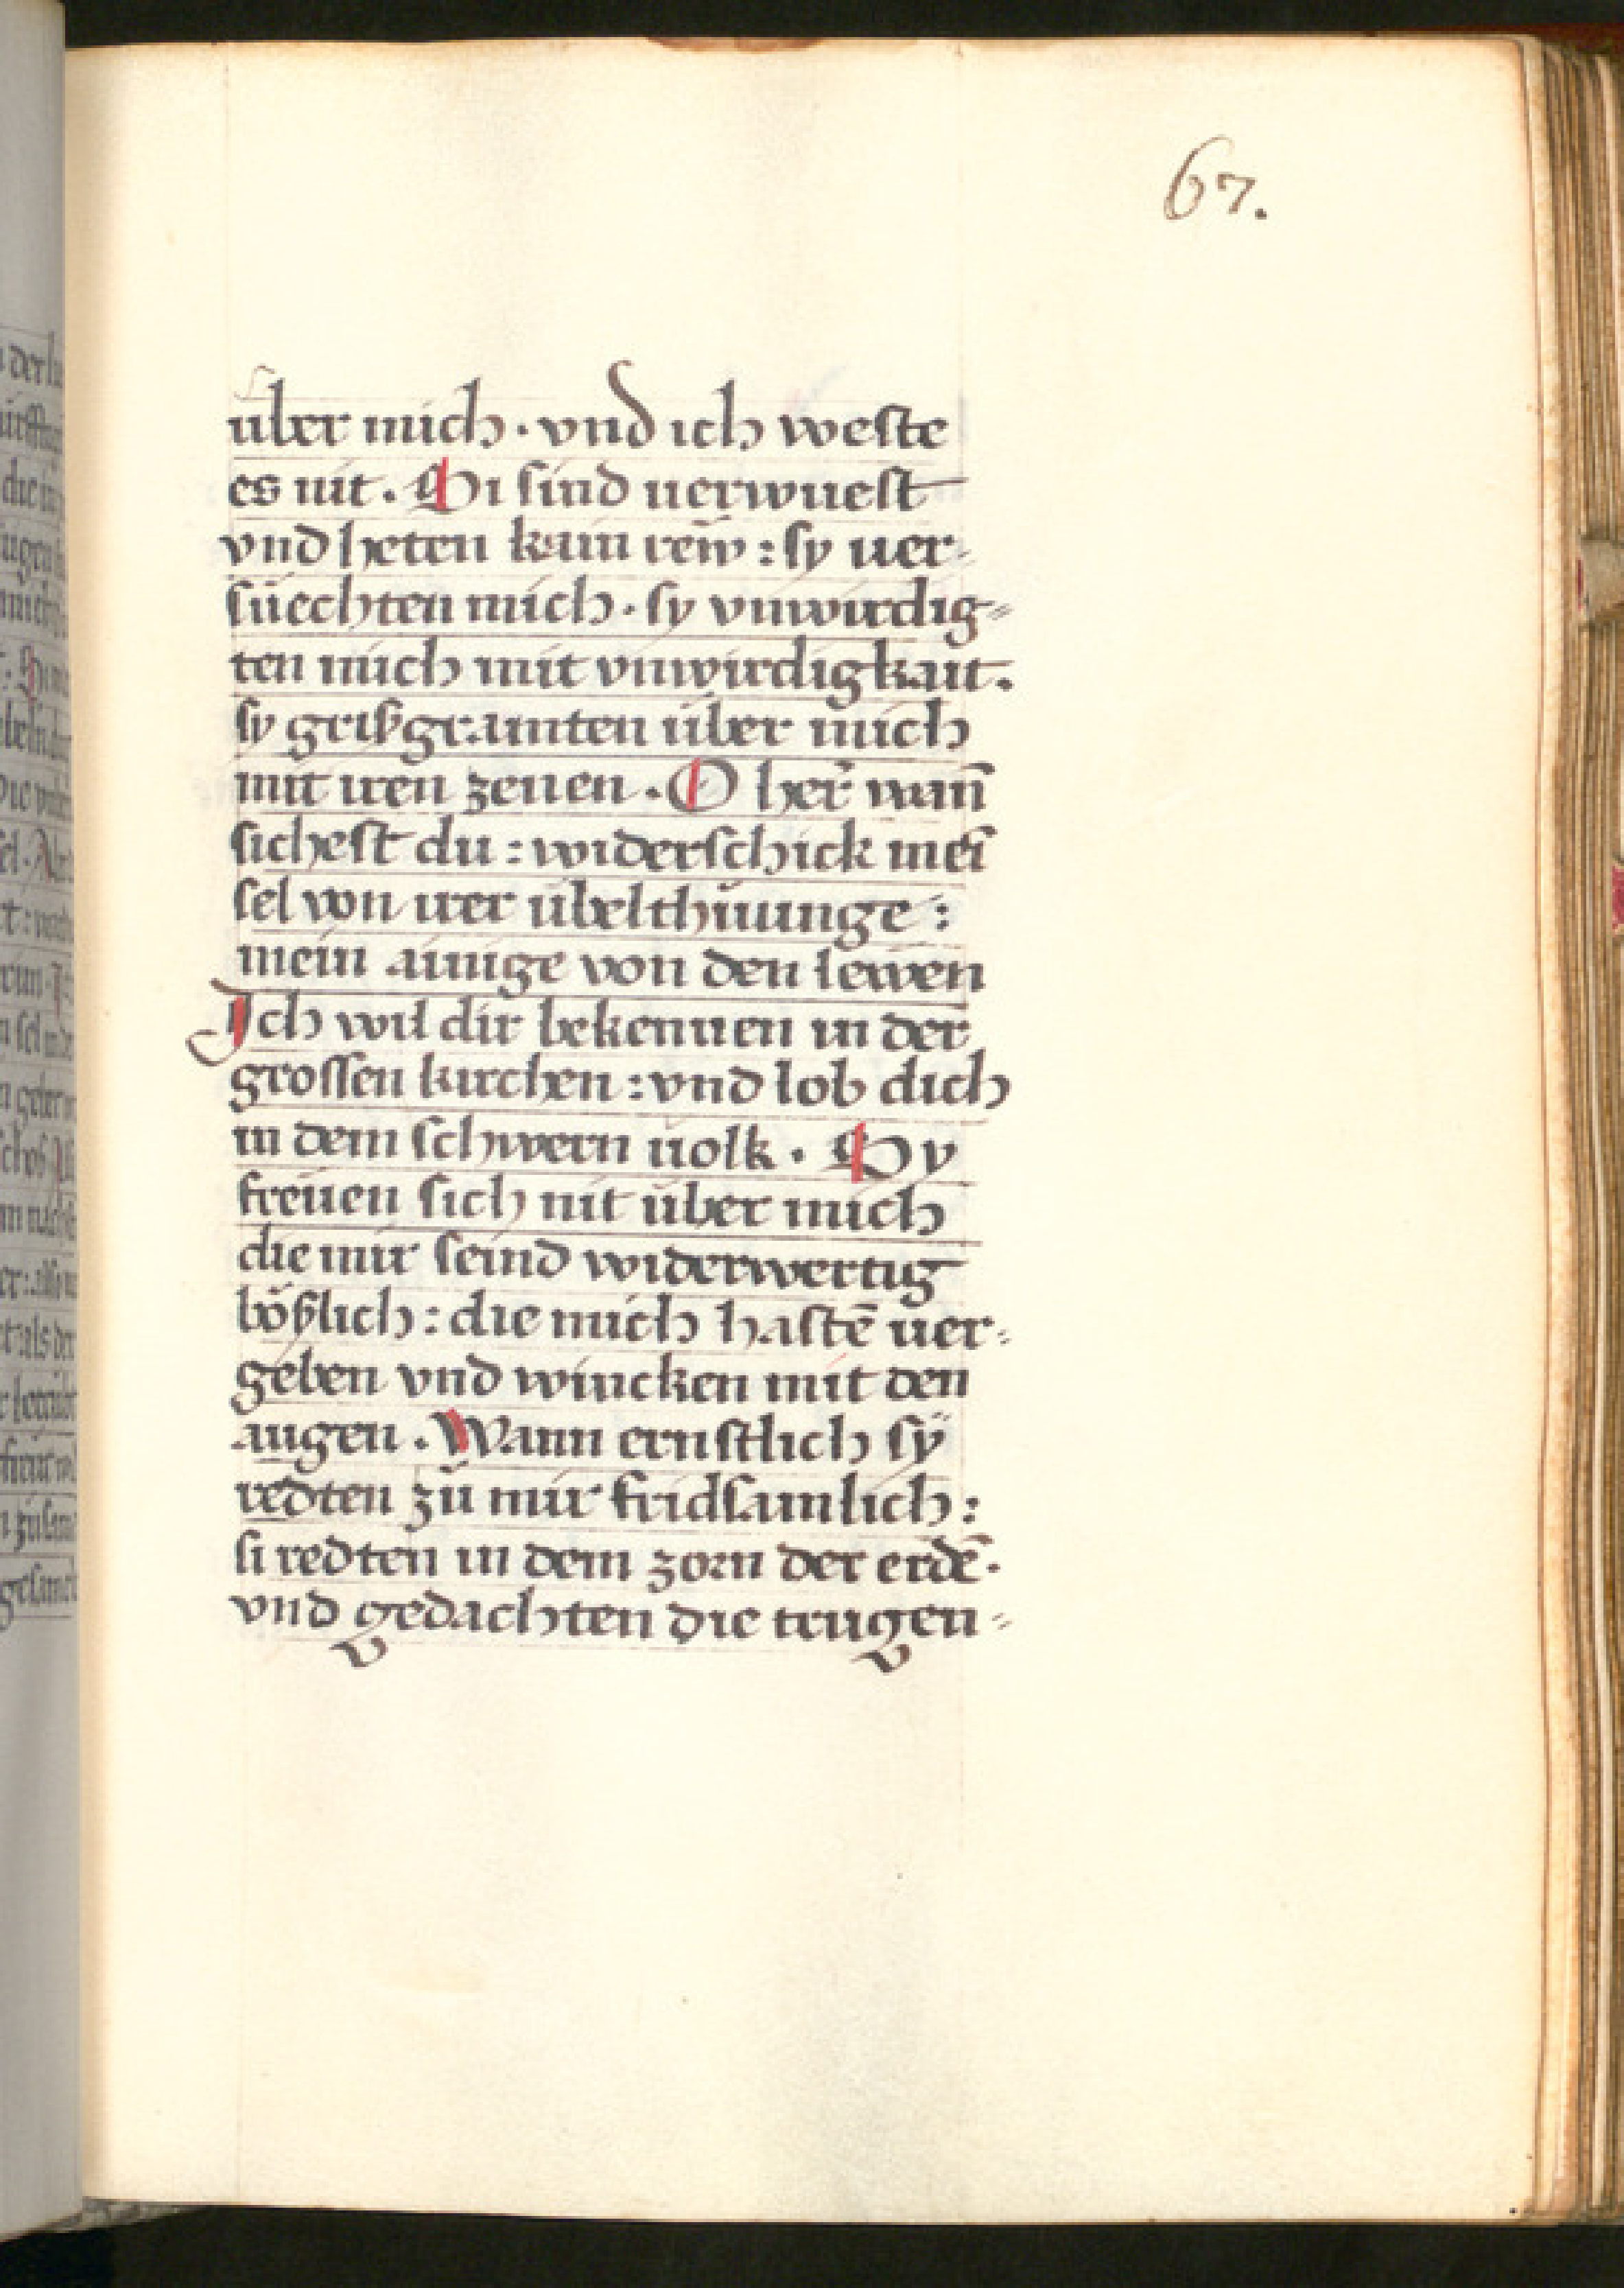 67.
über mich · vnd ich weste
es nit . Si sind uerwuest
vnd heten kain rew̄ : sy uer-
süechten mich · sy vnwirdig=
ten mich mit vnwirdigkait .
sy grißgramten über mich
mit iren zenen . O her̄ wan̄
sichest du : widerschick mei̅
sel von irer übelthuunge :
mein ainige von den lewen
Ich wil dir bekennen in der
grossen kirchen : vnd lob dich
in dem schwern uolk . Sy
freüen sich nit über mich
die mir seind widerwertig
bößlich : die mich hastē uer=
geben vnd wincken mit den
augen . Wann ernstlich sÿ
redten zů mir fridsamlich :
si redten in dem zorn der erdē ·
vnd gedachten die teugen=